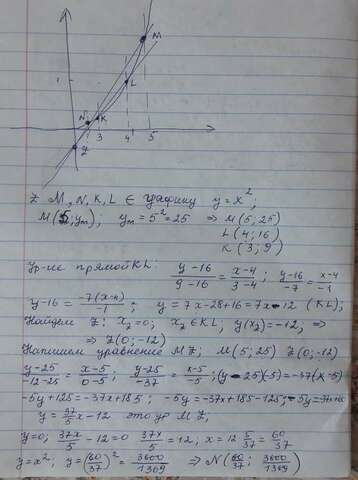 Z N K L M
1 3 4 5
Z M, N, K, L ∈ графику y = x²,
M(5; yм); yм = 5² = 25 ⇒ M(5; 25)
L(4; 16)
K(3; 9)
Ур-ие прямой KL: (y-16)/(y-16) = (x-4)/(3-4); (y-16)/-7 = (x-4)/-1
y-16 = -7(x-4)/-1; y = 7x-28+16 = 7x-12 (KL);
Z: x_Z = 0; x_Z ∈ KL, y(x_Z) = -12, ⇒
⇒ Z(0; -12)
уравнение MZ; M(5; 25) Z(0; -12)
(y-25)/(-12-25) = (x-5)/(0-5); (y-25)/-37 = (x-5)/-5; (y-25)(-5) = -37(x-5)
-5y+125 = -37x+185; -5y = -37x+185-125
y = 37x/5 - 12 это ур MZ,
y=0; 37x/5 - 12 = 0 37x/5 = 12, x = 12·5/37 = 60/37
y = x²; y = (60/37)² = 3600/1369 ⇒ N(60/37; 3600/1369)